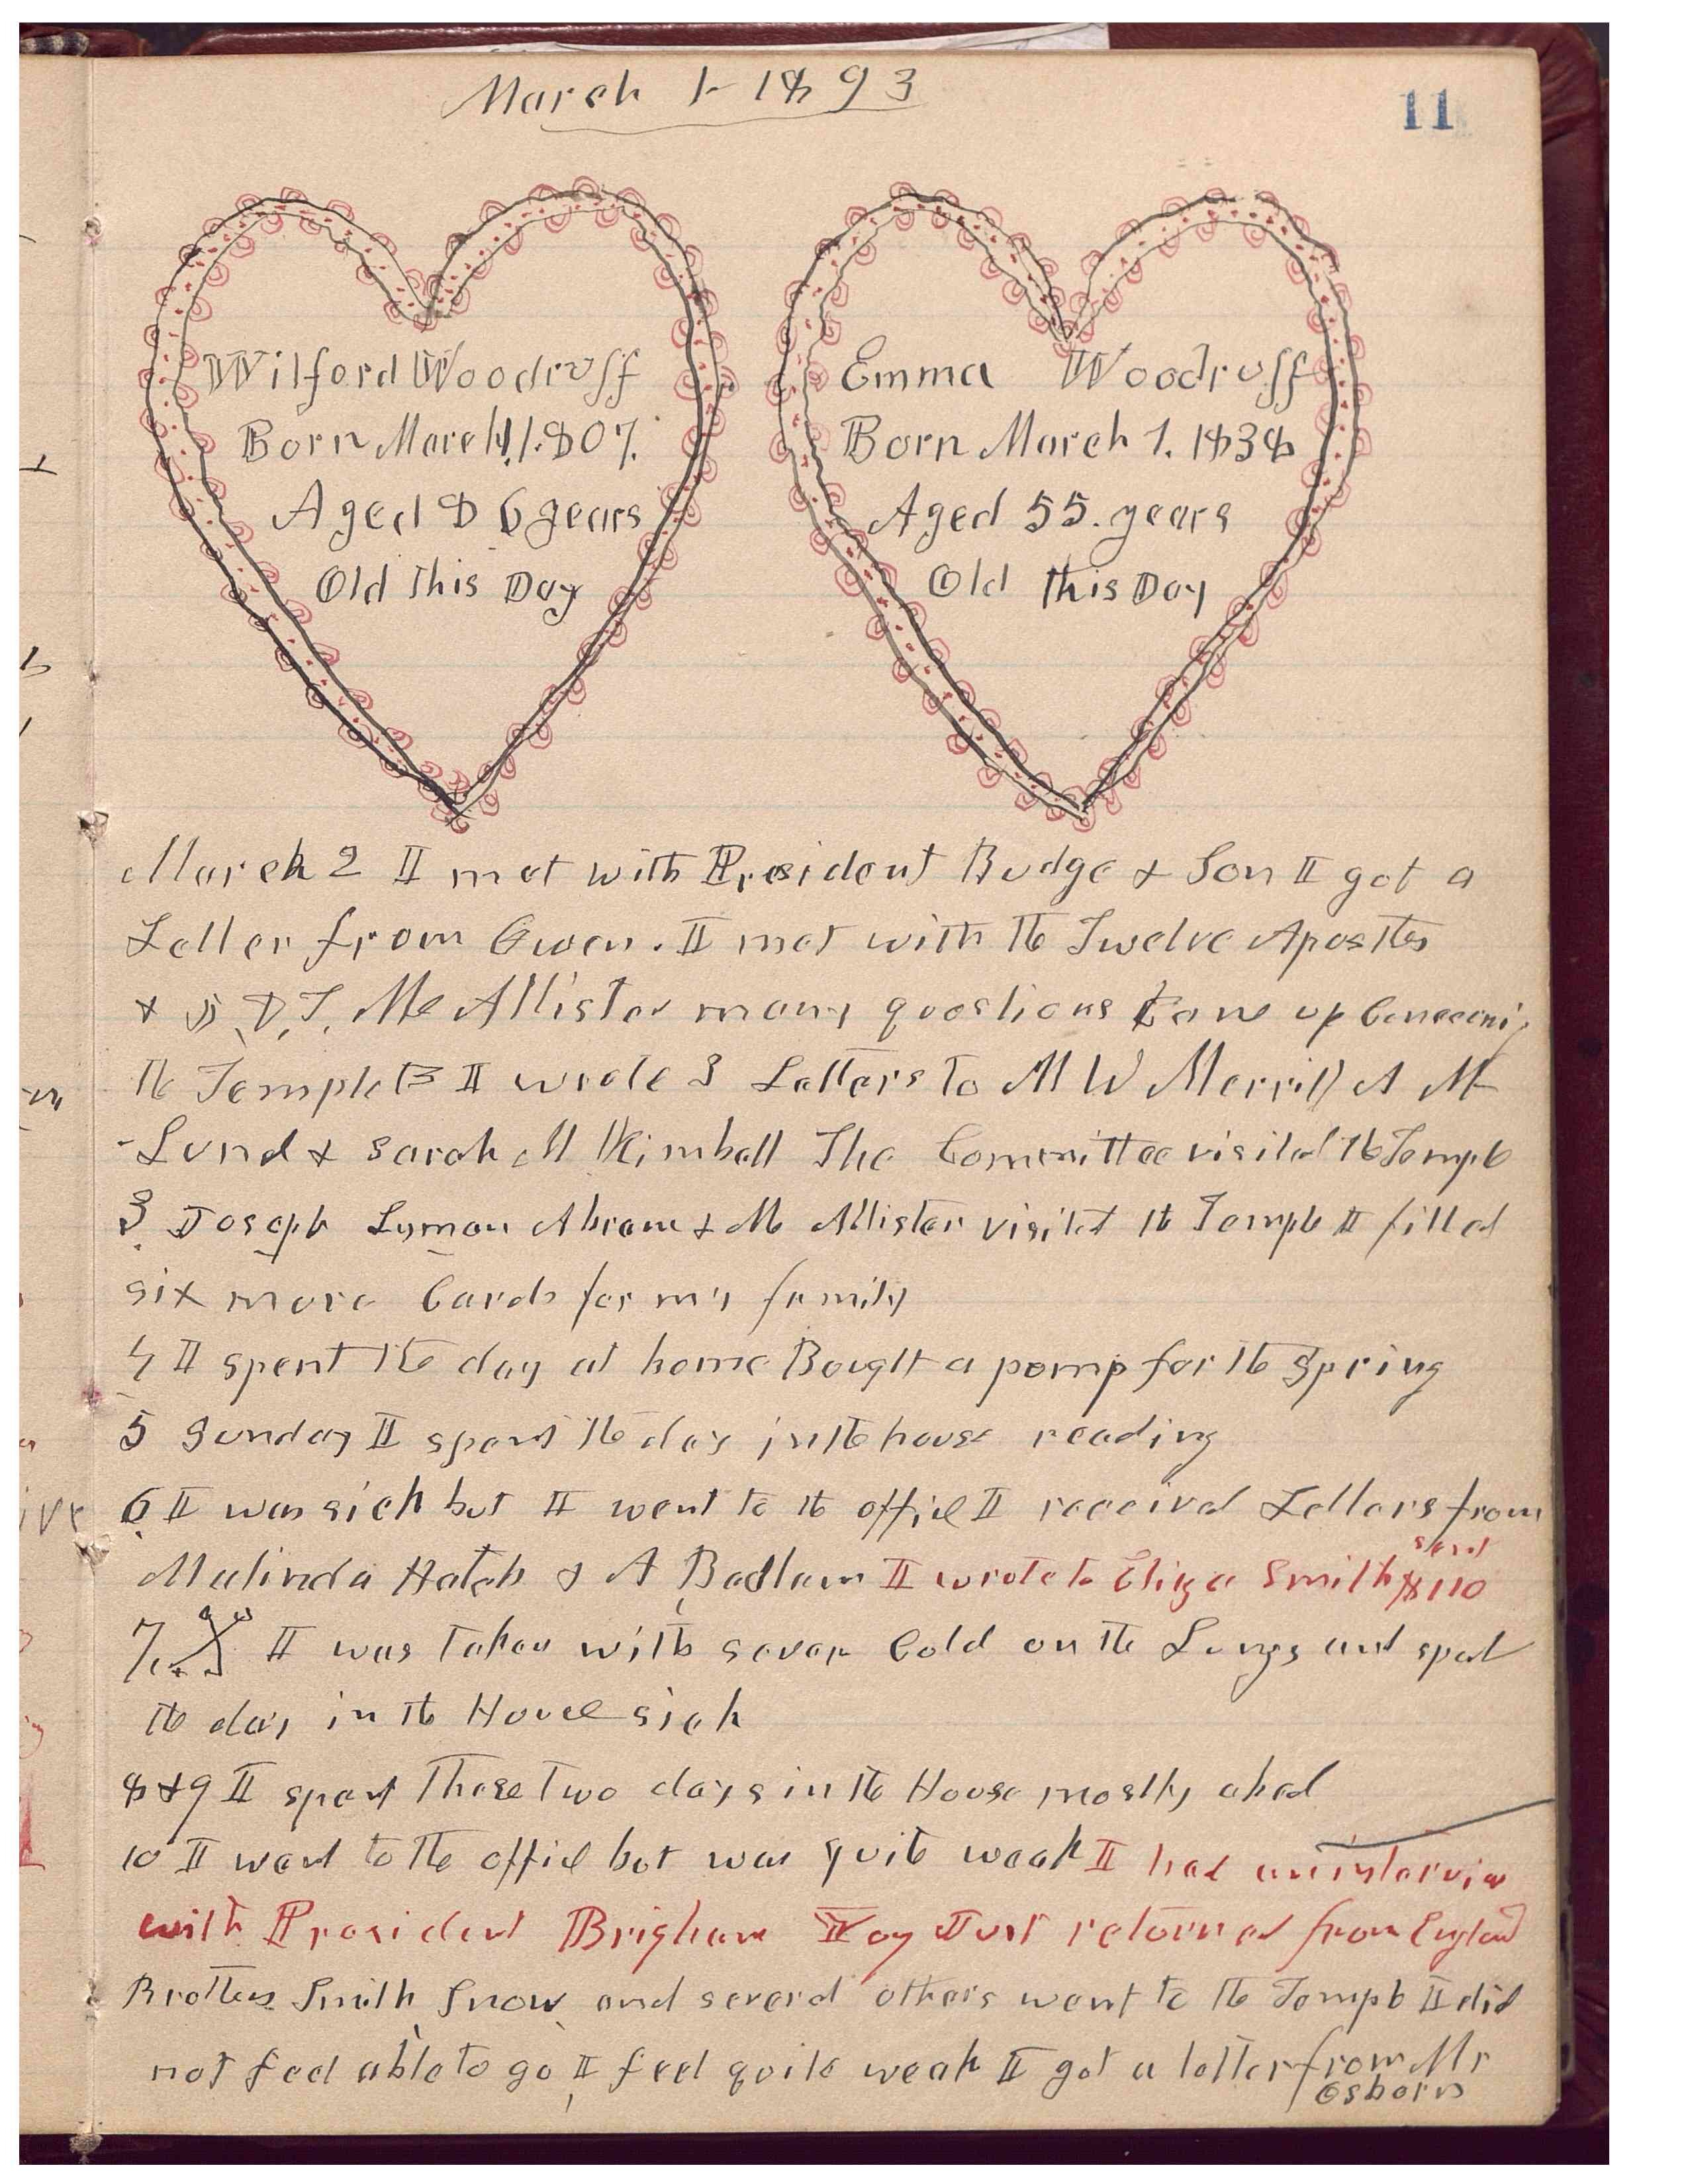 March 1- 1893
11
Wilford Woodruff
Born March 1. 1807.
Aged 86 years
Old this Day
Emma Woodruff
Born March 1. 1838
Aged 55. years
Old this Day
March 2 I met with President Budge & Son I got a
Letter from Owen. I met with the Twelve Apostles
& J, D, T, McAllister many questions Came up Concerning
the Temples I wrote 3 Letters to M W Merrill A M
Lund & Sarah M Kimball The Committee visited the Temple
3 Joseph Lyman Abram & Mc Allister visited the Temple I filled
six more Cards for my family
4 I spent the day at home Bought a pomp for the Spring
5 Sunday I spent the day in the house reading
6 I was sick but I went to the office I received Letters from
Malinda Hatch & A Badlam I wrote to Eliza Smith sent $110
7. I was taken with sever Cold on the Lungs and spent
the day in the House sick
8 & 9 I spent These Two days in the House mostly abed
10 I went to the office but was quite weak I had an interview
with President Brigham Young Just returned from England
Brothers Smith Snow and several others went to the Temple I did
not feel able to go I feel quite weak I got a letter from Mr
Osborn